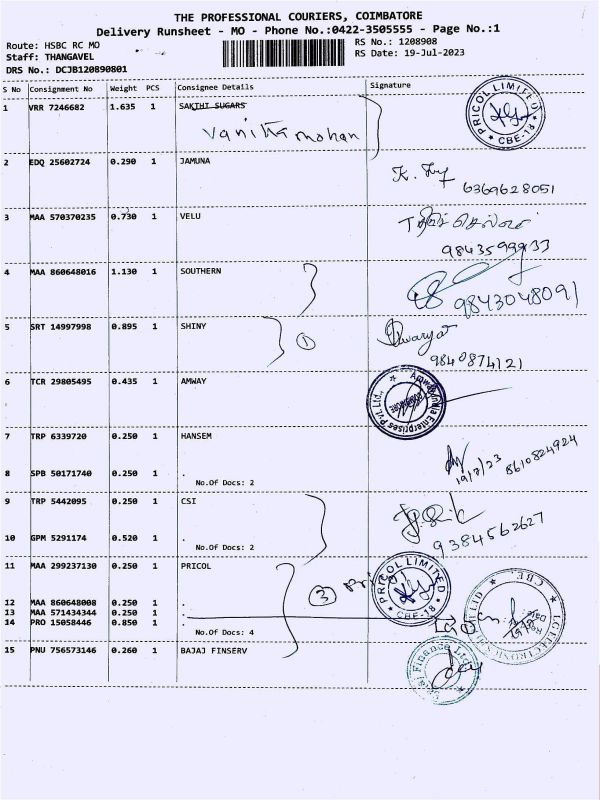 THE PROFESSIONAL COURIERS, COIMBATORE
Delivery Runsheet - MO - Phone No.:0422-3505555 - Page No.:1
Route: HSBC RC MO
RS No.: 1208908
Staff: THANGAVEL
RS Date: 19-Jul-2023
DRS No.: DCJB120890801
S No Consignment No Weight PCS Consignee Details Signature
1 VRR 7246682 1.635 1 SAKTHI SUGARS
PRICOL LIMITED CBE-18
Vanitha mohan
2 EDQ 25602724 0.290 1 JAMUNA
6369628051
3 MAA 570370235 0.730 1 VELU
4 MAA 860648016 1.130 1 SOUTHERN
9843048091
5 SRT 14997998 0.895 1 SHINY
1
9840874121
6 TCR 29805495 0.435 1 AMWAY
Amway India Enterprises Pvt. Ltd.,
7 TRP 6339720 0.250 1 HANSEM
19/7/23 8610824924
8 SPB 50171740 0.250 1 .
No.Of Docs: 2
9 TRP 5442095 0.250 1 CSI
9384562627
10 GPM 5291174 0.520 1 .
No.Of Docs: 2
11 MAA 299237130 0.250 1 PRICOL
3
PRICOL LIMITED CBE-18
12 MAA 860648008 0.250 1 .
13 MAA 571434344 0.250 1 .
14 PRO 15058446 0.850 1 .
No.Of Docs: 4
15 PNU 756573146 0.260 1 BAJAJ FINSERV
Finance Ltd